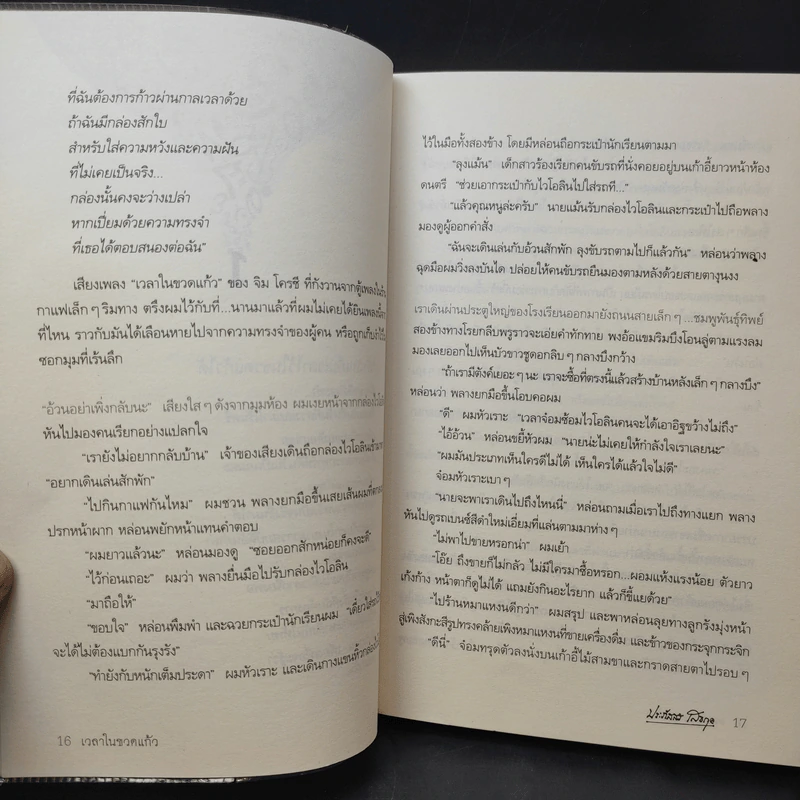 ที่ฉันต้องการก้าวผ่านกาลเวลาด้วย
ถ้าฉันมีกล่องสักใบ
สำหรับใส่ความหวังและความฝัน
ที่ไม่เคยเป็นจริง...
กล่องนั้นคงจะว่างเปล่า
หากเปี่ยมด้วยความทรงจำ
ที่เธอได้ตอบสนองต่อฉัน"
เสียงเพลง "เวลาในขวดแก้ว" ของ จิม โครซี ที่กังวานจากตู้เพลงในร้าน
กาแฟเล็กๆ ริมทาง ตรึงผมไว้กับที่...นานมาแล้วที่ผมไม่เคยได้ยินเพลงนี้จาก
ที่ไหน ราวกับมันได้เลือนหายไปจากความทรงจำของผู้คน หรือถูกเก็บงำไว้ใน
ซอกมุมที่เร้นลึก
"อ้วนอย่าเพิ่งกลับนะ" เสียงใสๆ ดังจากมุมห้อง ผมเงยหน้าจากกล่องไวโอลิน
หันไปมองคนเรียกอย่างแปลกใจ
"เรายังไม่อยากกลับบ้าน" เจ้าของเสียงเดินถือกล่องไวโอลินเข้ามา
"อยากเดินเล่นสักพัก"
"ไปกินกาแฟกันไหม" ผมชวน พลางยกมือขึ้นเสยเส้นผมที่ตกลง
ปรกหน้าผาก หล่อนพยักหน้าแทนคำตอบ
"ผมยาวแล้วนะ" หล่อนมองดู "ซอยออกสักหน่อยก็คงจะดี"
"ไว้ก่อนเถอะ" ผมว่า พลางยื่นมือไปรับกล่องไวโอลิน
"มาถือให้"
"ขอบใจ" หล่อนพึมพำ และฉวยกระเป๋านักเรียนผม "เดี๋ยวใส่รถ
จะได้ไม่ต้องแบกกันรุงรัง"
"ทำยังกับหนักเต็มประดา" ผมหัวเราะ และเดินกางแขนหิ้วกล่อง
16 เวลาในขวดแก้ว
ไว้ในมือทั้งสองข้าง โดยมีหล่อนถือกระเป๋านักเรียนตามมา
"ลุงแม้น" เด็กสาวร้องเรียกคนขับรถที่นั่งคอยอยู่บนเก้าอี้ยาวหน้าห้อง
ดนตรี "ช่วยเอากระเป๋ากับไวโอลินไปใส่รถที..."
"แล้วคุณหนูล่ะครับ" นายแม้นรับกล่องไวโอลินและกระเป๋าไปถือพลาง
มองดูผู้ออกคำสั่ง
"ฉันจะเดินเล่นกับอ้วนสักพัก ลุงขับรถตามไปก็แล้วกัน" หล่อนว่าพลาง
ฉุดมือผมวิ่งลงบันได ปล่อยให้คนขับรถยืนมองตามหลังด้วยสายตางุนงง
เราเดินผ่านประตูใหญ่ของโรงเรียนออกมายังถนนสายเล็กๆ ...ชมพูพันธุ์ทิพย์
สองข้างทางโรยกลีบพรูราวจะเอ่ยคำทักทาย พงอ้อแขมริมบึงโอนลู่ตามแรงลม
มองเลยออกไปเห็นบัวขาวชูดอกลิบๆ กลางบึงกว้าง
"ถ้าเรามีตังค์เยอะๆ นะ เราจะซื้อที่ตรงนี้แล้วสร้างบ้านหลังเล็กๆ กลางบึง"
หล่อนว่า พลางยกมือขึ้นโอบคอผม
"ดี" ผมหัวเราะ "เวลาจ๋อมซ้อมไวโอลินคนจะได้เอาอิฐขว้างไม่ถึง"
"ไอ้อ้วน" หล่อนขยี้หัวผม "นายน่ะไม่เคยให้กำลังใจเราเลยนะ"
"ผมมันประเภทเห็นใครดีไม่ได้ เห็นใครได้แล้วใจไม่ดี"
จ๋อมหัวเราะเบาๆ
"นายจะพาเราเดินไปถึงไหนนี่" หล่อนถามเมื่อเราไปถึงทางแยก พลาง
หันไปดูรถเบนซ์สีดำใหม่เอี่ยมที่แล่นตามมาห่างๆ
"ไม่พาไปขายหรอกน่า" ผมเย้า
"โอ๊ย ถึงขายก็ไม่กลัว ไม่มีใครมาซื้อหรอก...ผอมแห้งแรงน้อย ตัวยาว
เก้งก้าง หน้าตาก็ดูไม่ได้ แถมยังกินอะไรยาก แล้วก็ขี้แยด้วย"
"ไปร้านหมาแหงนดีกว่า" ผมสรุป และพาหล่อนลุยทางลูกรังมุ่งหน้า
สู่เพิงสังกะสีรูปทรงคล้ายเพิงหมาแหงนที่ขายเครื่องดื่ม และข้าวของกระจุกกระจิก
"ดีนี่" จ๋อมทรุดตัวลงนั่งบนเก้าอี้ไม้สามขาและกราดสายตาไปรอบๆ
ประภัสสร เสวิกุล 17